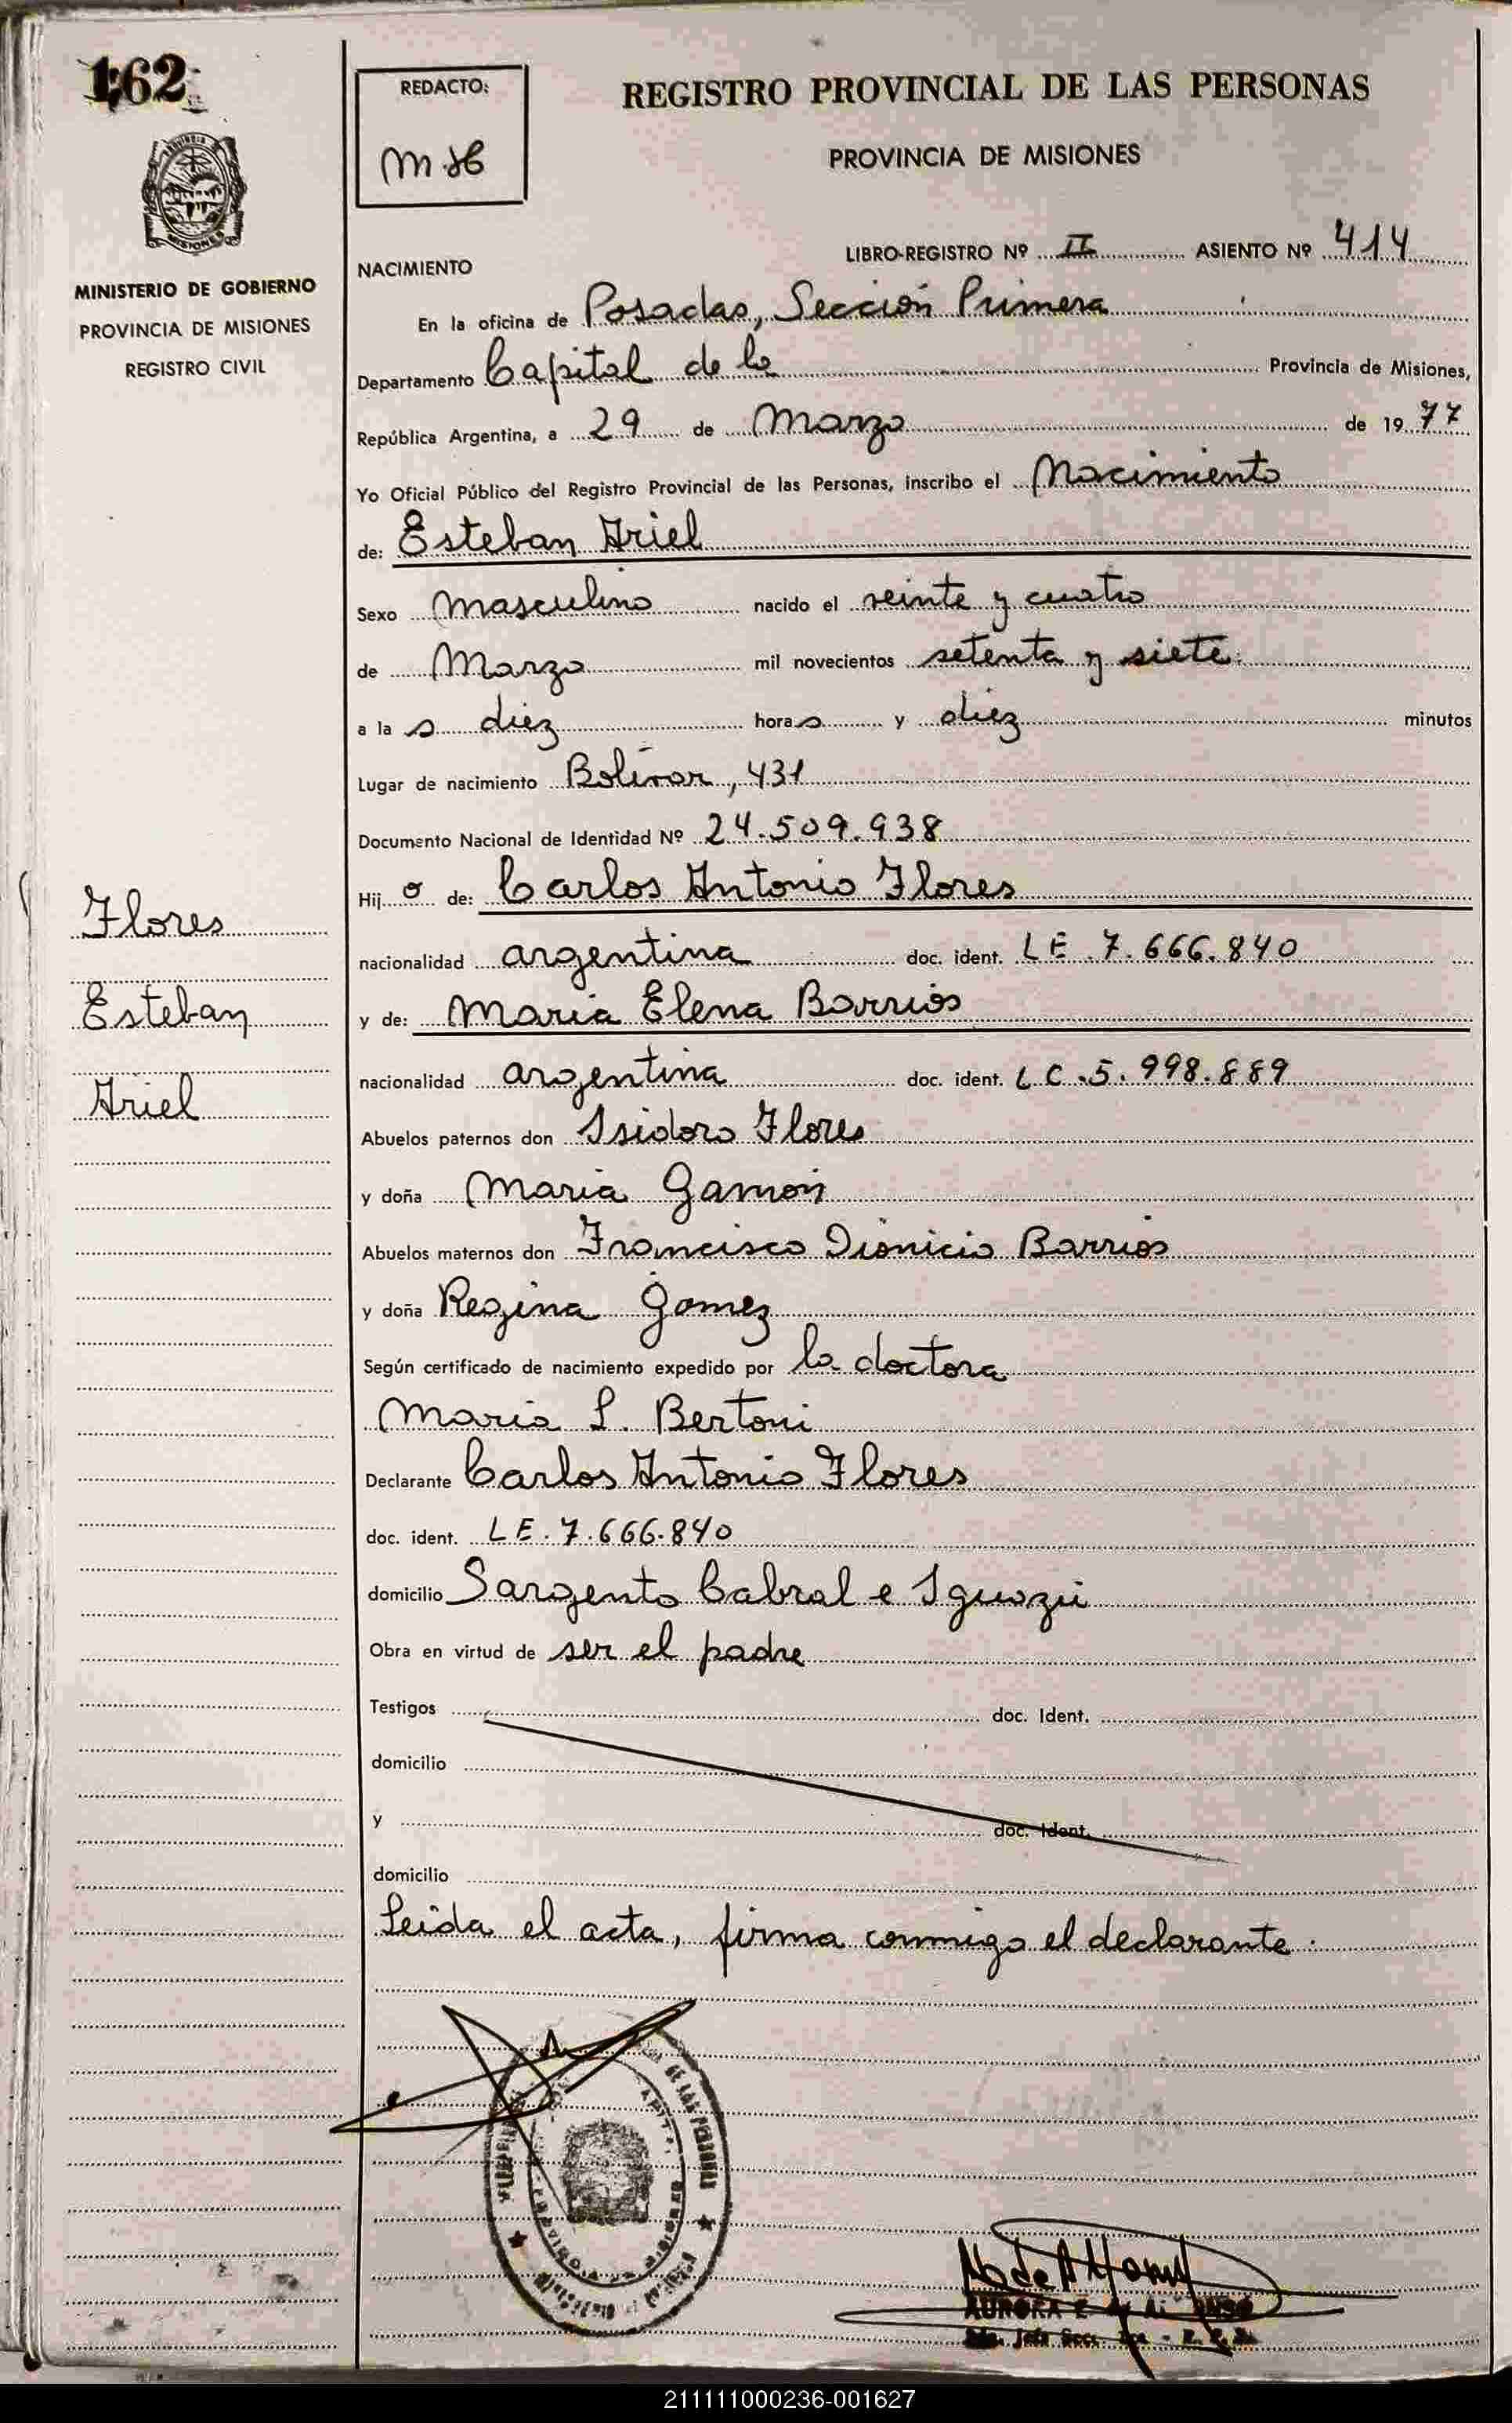 162
REDACTO:
REGISTRO PROVINCIAL DE LAS PERSONAS
PROVINCIA DE MISIONES
MISIONES
MINISTERIO DE GOBIERNO
PROVINCIA DE MISIONES
REGISTRO CIVIL
LIBRO-REGISTRO Nº II ASIENTO Nº 414
NACIMIENTO
En la oficina de Posadas, Sección Primera
Departamento Capital de la Provincia de Misiones,
República Argentina, a 29 de Marzo de 1977
Yo Oficial Público del Registro Provincial de las Personas, inscribo el Nacimiento
de: Esteban Ariel
Sexo masculino nacido el veinte y cuatro
de Marzo mil novecientos setenta y siete.
a la s diez horas y diez minutos
Lugar de nacimiento Bolívar, 431
Documento Nacional de Identidad Nº 24.509.938
Hijo de: Carlos Antonio Flores
nacionalidad argentina doc. ident. LE 7.666.840
y de: Maria Elena Barrios
nacionalidad argentina doc. ident. LC.5.998.889
Abuelos paternos don Isidoro Flores
y doña Maria Gamón
Abuelos maternos don Francisco Dionicio Barrios
y doña Regina Gomez
Según certificado de nacimiento expedido por la doctora
Maria L. Bertoni
Declarante Carlos Antonio Flores
doc. ident. LE.7.666.840
domicilio Sargento Cabral e Iguazú
Obra en virtud de ser el padre
Testigos doc. Ident.
domicilio
y doc. Ident.
domicilio
Leida el acta, firma conmigo el declarante.
Flores
Esteban
Ariel
DE LAS PERSONAS
AURORA E.
211111000236-001627